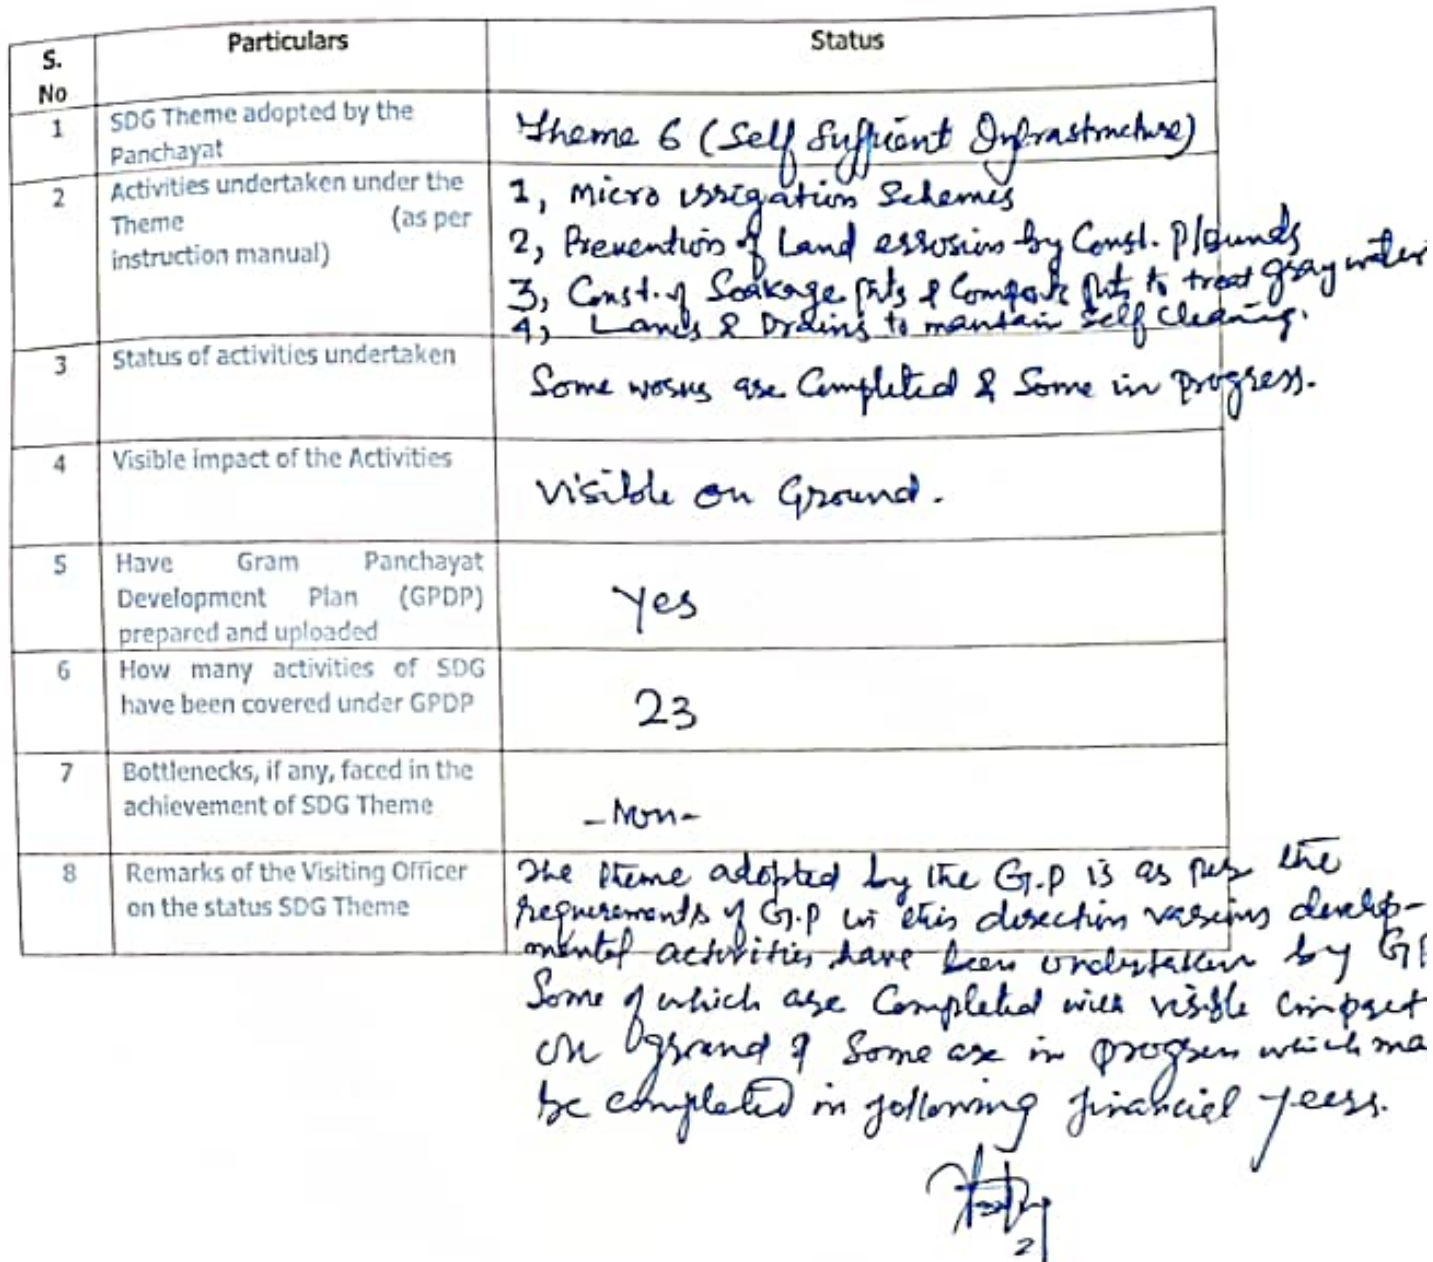 S. No Particulars Status
1 SDG Theme adopted by the Theme 6 (Self Sufficient Infrastructure)
Panchayat
2 Activities undertaken under the 1, Micro irrigation Schemes
Theme (as per 2, Prevention of Land erosion by Const. P/Bunds
instruction manual) 3, Const. of Soakage pits & Compost pits to treat gray water
4, Lanes & Drains to mantain self cleaning.
3 Status of activities undertaken Some works are Completed & Some in progress.
4 Visible impact of the Activities Visible on Ground.
5 Have Gram Panchayat
Development Plan (GPDP) Yes
prepared and uploaded
6 How many activities of SDG
have been covered under GPDP 23
7 Bottlenecks, if any, faced in the
achievement of SDG Theme -Non-
8 Remarks of the Visiting Officer The theme adopted by the G.P is as per the
on the status SDG Theme requirements of G.P in this direction various develop-
mental activities have been undertaken by GP
Some of which are Completed with visible impact
on ground & Some are in progress which ma
be completed in following financial years.